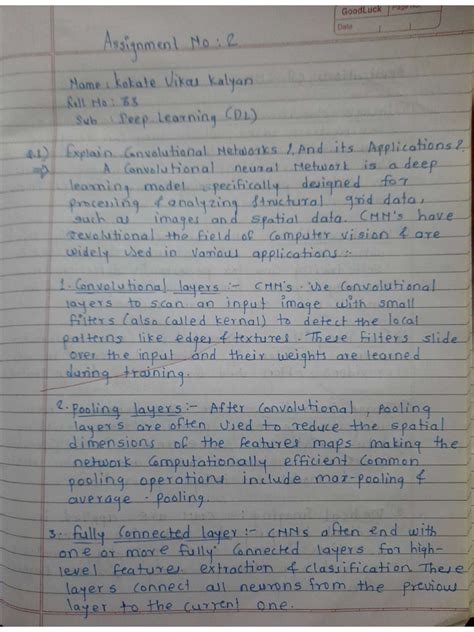 GoodLuck
Date
Assignment No : 2
Name : Kokate Vikas Kalyan
Roll No : 33
Sub : Deep Learning (DL)
Q.1) Explain Convolutional Networks ? And its Applications ?
A Convolutional neural Network is a deep
learning model specifically designed for
processing & analyzing structural grid data,
such as images and spatial data. CNN's have
revolutional the field of computer vision & are
widely used in various applications :-
1. Convolutional layers :- CNN's use convolutional
layers to scan an input image with small
filters (also called kernal) to detect the local
patterns like edges & textures. These filters slide
over the input and their weights are learned
during training.
2. Pooling layers :- After convolutional, pooling
layers are often used to reduce the spatial
dimensions of the features maps making the
network computationally efficient common
pooling operations include max-pooling &
average - pooling.
3. Fully Connected layer :- CNNs often end with
one or more fully connected layers for high-
level features extraction & classification These
layers connect all neurons from the previous
layer to the current one.